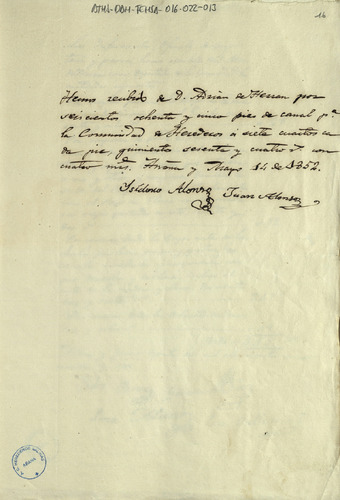 ATHA-DBH-TCHSA-016-022-013
16
Hemos recibido de D. Adrian de Herran por
seiscientos ochenta y cinco pies de canal pa
la Comunidad de Herederos á siete cuartos ca
da pie, quinientos sesenta y cuatro rs con
cuatro mrs. y Mayo 14 de 1852.
Isidoro Alonso
Juan Alonso